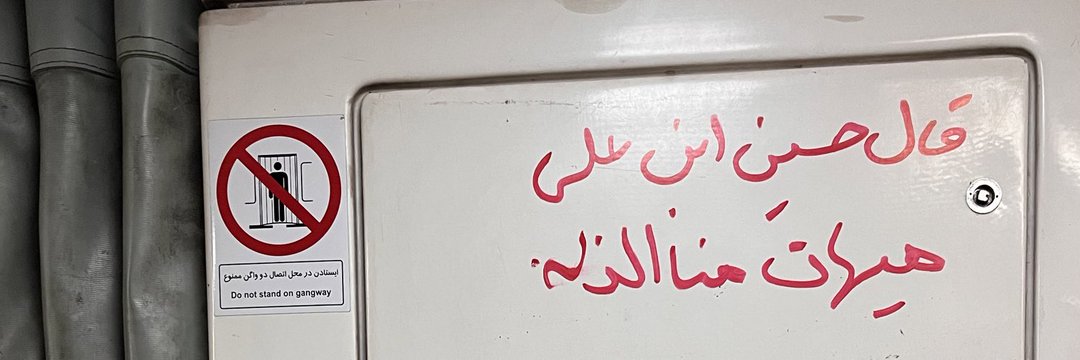 قال حسین ابن علی
هیهات منا الذله
ایستادن در محل اتصال دو واگن ممنوع
Do not stand on gangway